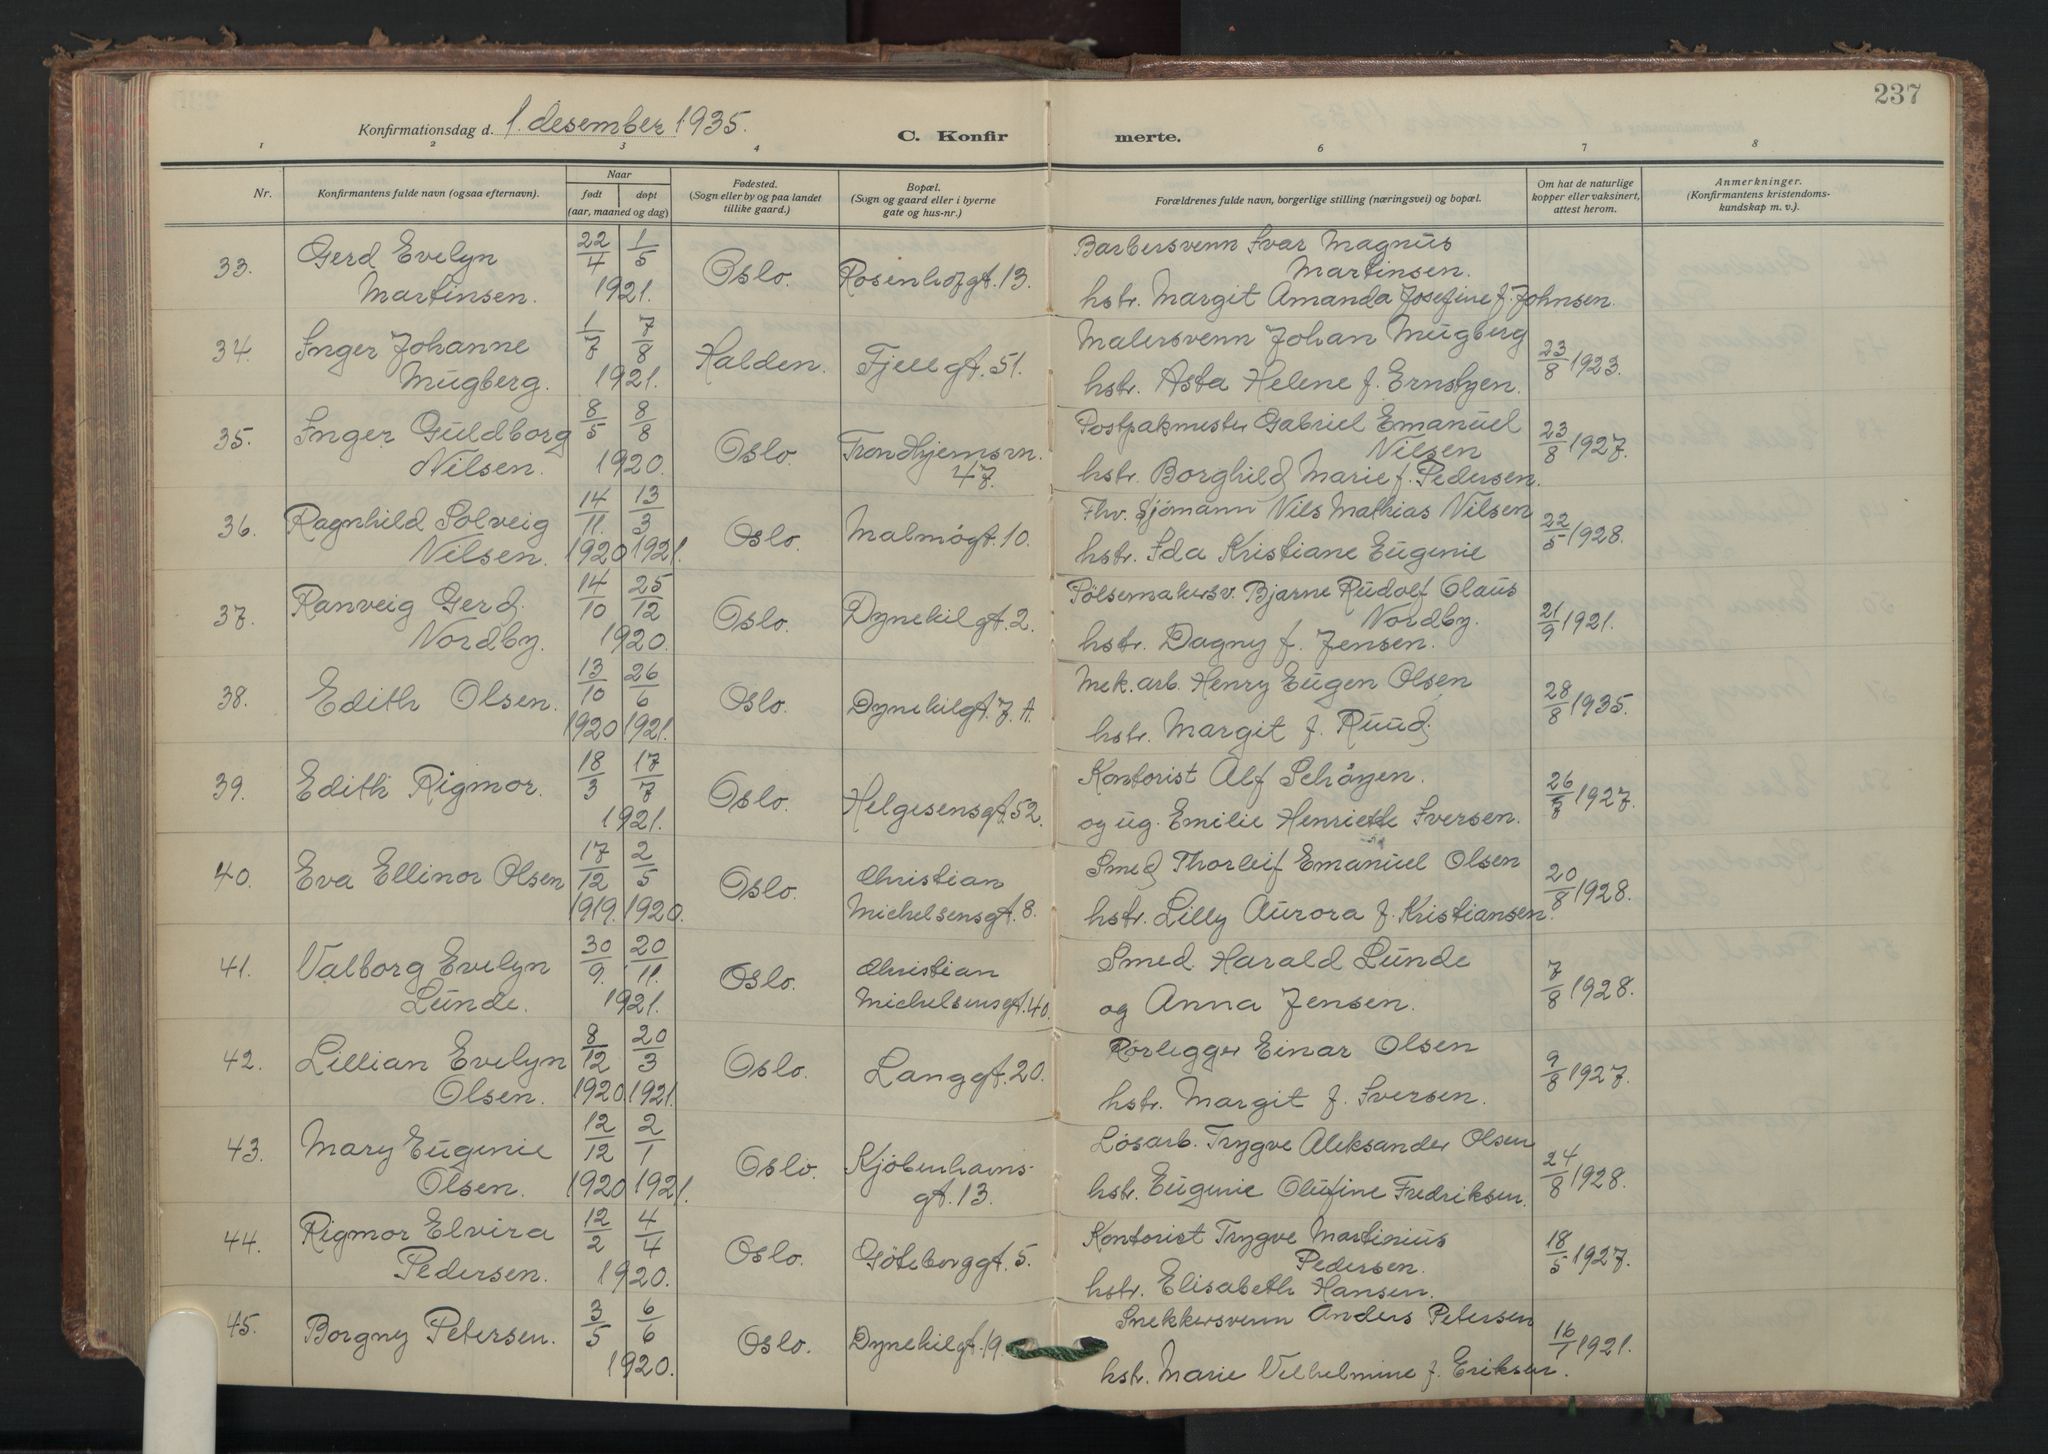 237
Konfirmationsdag d. 1. desember 1935.
C. Konfirmerte.
1 2 3 4 6 7 8
Nr. Konfirmantens fulde navn (ogsaa efternavn). Naar født døpt (aar, maaned og dag) Fødested. (Sogn eller by og paa landet tillike gaard.) Bopæl. (Sogn og gaard eller i byerne gate og hus-nr.) Forældrenes fulde navn, borgerlige stilling (næringsvei) og bopæl. Om hat de naturlige kopper eller vaksinert, attest herom. Anmerkninger. (Konfirmantens kristendoms-kundskap m. v.).
33. Gerd Evelyn Martinsen. 22/4 1/5 1921. Oslo. Rosenhofgt. 13. Barbersvenn Ivar Magnus Martinsen.
hstr. Margit Amanda Josefine f. Johnsen.
34. Inger Johanne Mugberg. 1/7 7/8 1921. Halden. Fjellgt. 51. Malersvenn Johan Mugberg
hstr. Asta Helene f. 23/8 1923.
35. Inger Guldborg Nilsen. 8/5 8/8 1920. Oslo. Trondhjemsvn. 47. Postpakmester Gabriel Emanuel Nilsen
hstr. Borghild Marie f. Pedersen. 23/8 1927.
36. Ragnhild Solveig Nilsen. 14/11 1920 13/3 1921. Oslo. Malmögt. 10. Fhv. Sjömann Nils Mathias Nilsen
hstr. Ida Kristiane Eugenie 22/5 1928.
37. Ranveig Gerd Nordby. 14/10 25/12 1920. Oslo. Dynekilgt. 2. Pölsemakersv. Bjarne Rudolf Olaus Nordby.
hstr. Dagny f. Jensen. 21/9 1921.
38. Edith Olsen. 13/10 1920 26/6 1921. Oslo. Dynekilgt. 7. A. Mek. arb. Henry Eugen Olsen
hstr. Margit f. Ruud. 28/8 1935.
39. Edith Rigmor. 18/3 17/7 1921. Oslo. Helgesensgt. 52. Kontorist Alf Schöyen.
og ug. Emilie Henriette Iversen. 1927.
40. Eva Ellinor Olsen 17/12 1919. 2/5 1920. Oslo. Christian Michelsensgt. 8. Smed Thorleif Emanuel Olsen
hstr. Lilly Aurora f. Kristiansen. 20/8 1928.
41. Valborg Evelyn Lunde. 30/9 20/11 1921. Oslo. Christian Michelsensgt. 40. Smed. Harald Lunde
og Anna Jensen. 7/8 1928.
42. Lillian Evelyn Olsen. 8/12 1920 20/3 1921. Oslo. Langgt. 20. Rörlegger Einar Olsen
hstr. Margit f. Iversen. 9/8 1927.
43. Mary Eugenie Olsen. 12/12 1920 2/1 1921. Oslo. Kjöbenhavns-gt. 13. Lösarb. Trygve Aleksander Olsen
hstr. Eugenie Olufine Fredriksen. 24/8 1928.
44. Rigmor Elvira Pedersen. 12/2 4/4 1920. Oslo. Göteborggt. 5. Kontorist Trygve Martinius Pedersen.
hstr. Elisabeth Hansen. 18/5 1927.
45. Borgny Petersen. 3/5 6/6 1920. Oslo. Dynekilgt. 19. Snekkersvenn Anders Petersen
hstr. Marie Vilhelmine f. Eriksen. 16/1 1921.